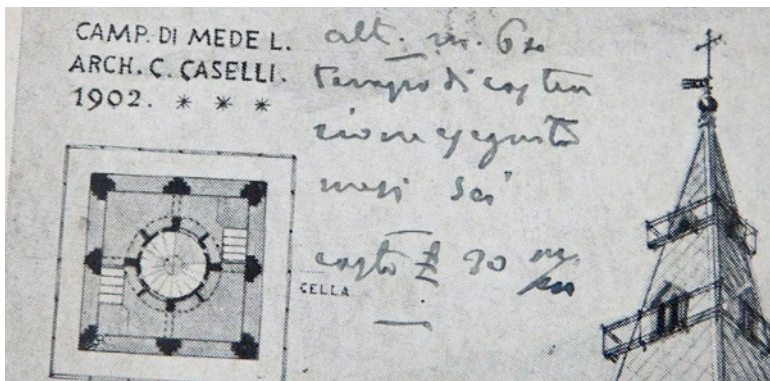 CAMP. DI MEDE L.
ARCH. C. CASELLI.
1902. * * *
alt. m. 60
tempo di costru
zione eseguito
mesi sei
costo £ 30
CELLA